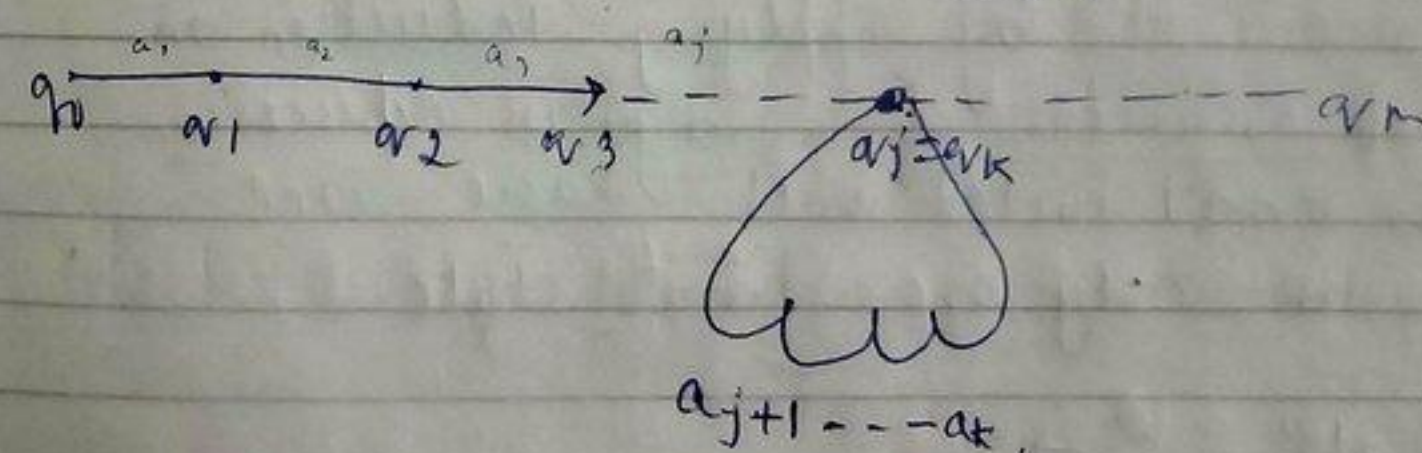 a₁ a₂ a₃ aⱼ
q₀ q1 q2 q3 qj=qk qm
aj+1 - - - ak